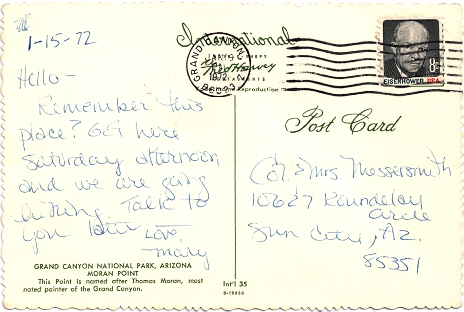 1-15-72
Hello-
Remember this
place? Got here
Saturday afternoon
and we are going
hiking. Talk to
you later
Love,
Mary
GRAND CANYON NATIONAL PARK, ARIZONA
MORAN POINT
This Point is named after Thomas Moran, most
noted painter of the Grand Canyon.
International
Fred Harvey
Reproduction
Int'l 35
D-18955
GRAND CANYON
JAN
1972
EISENHOWER USA
8c
Post Card
Col. & Mrs Messersmith
10627 Roundelay
Circle
Sun City, AZ.
85351